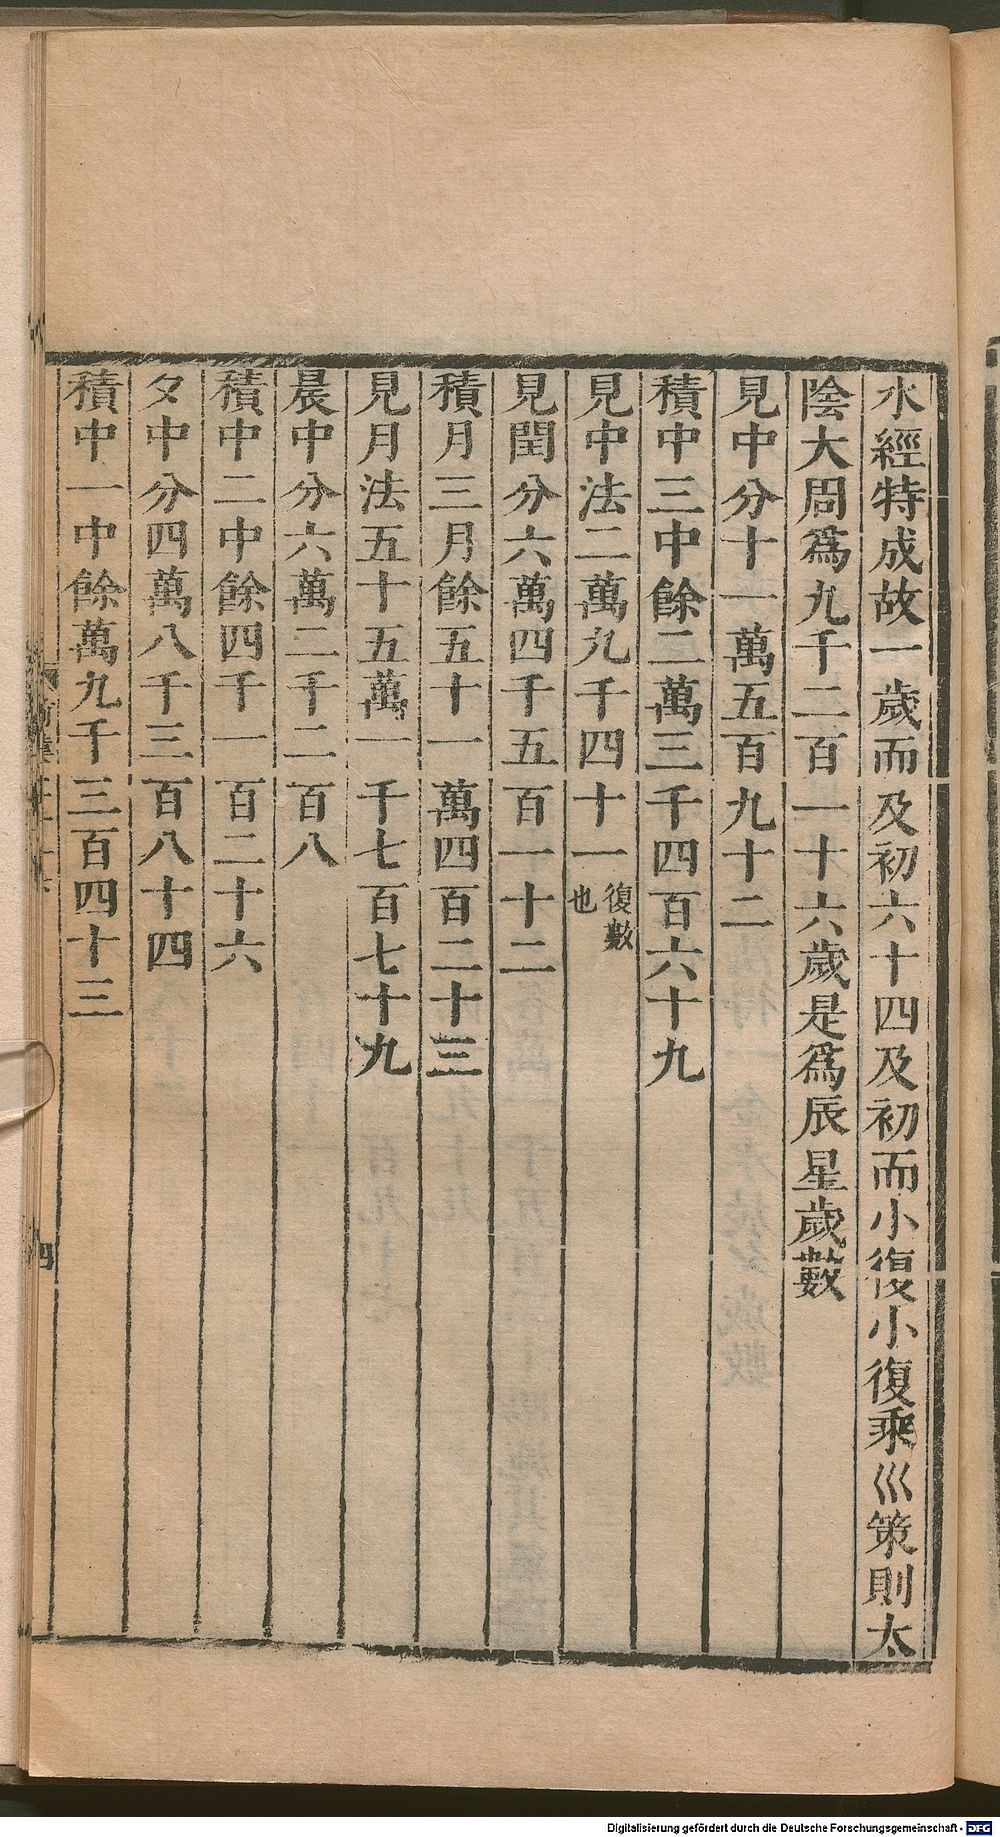 水經特成故一歲而及初六十四及初而小復小復乘巛策則太
陰大周爲九千二百一十六歲是爲辰星歲數
見中分十一萬五百九十二
積中三中餘二萬三千四百六十九
見中法二萬九千四十一復數也
見閏分六萬四千五百一十二
積月三月餘五十一萬四百二十三
見月法五十五萬一千七百七十九
晨中分六萬二千二百八
積中二中餘四千一百二十六
夕中分四萬八千三百八十四
積中一中餘萬九千三百四十三
四
Digitalisierung gefördert durch die Deutsche Forschungsgemeinschaft - DFG